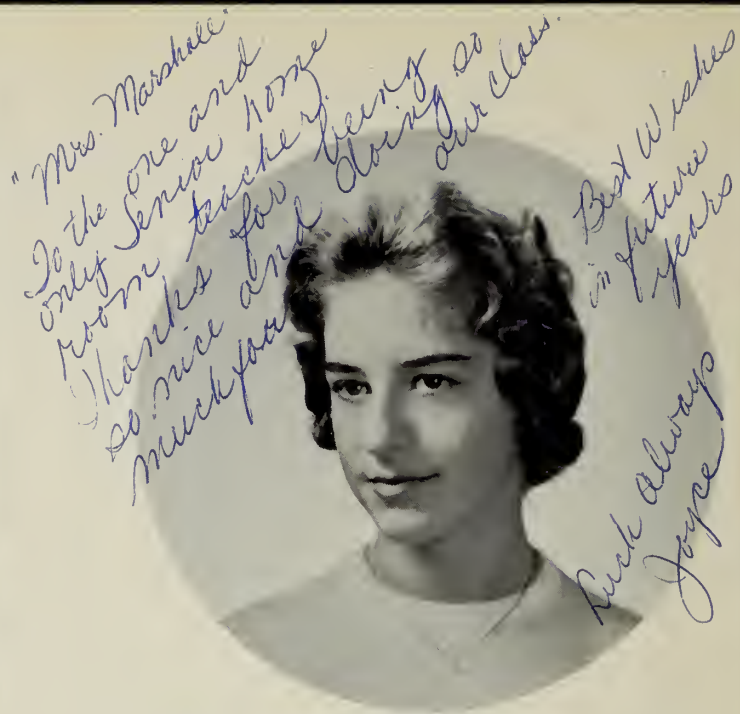 "Mrs. Marshall"
To the one and
only Senior home
room teacher.
Thanks for being
so nice and doing so
much for our class.
Best Wishes
in future
years
Luck always
Joyce